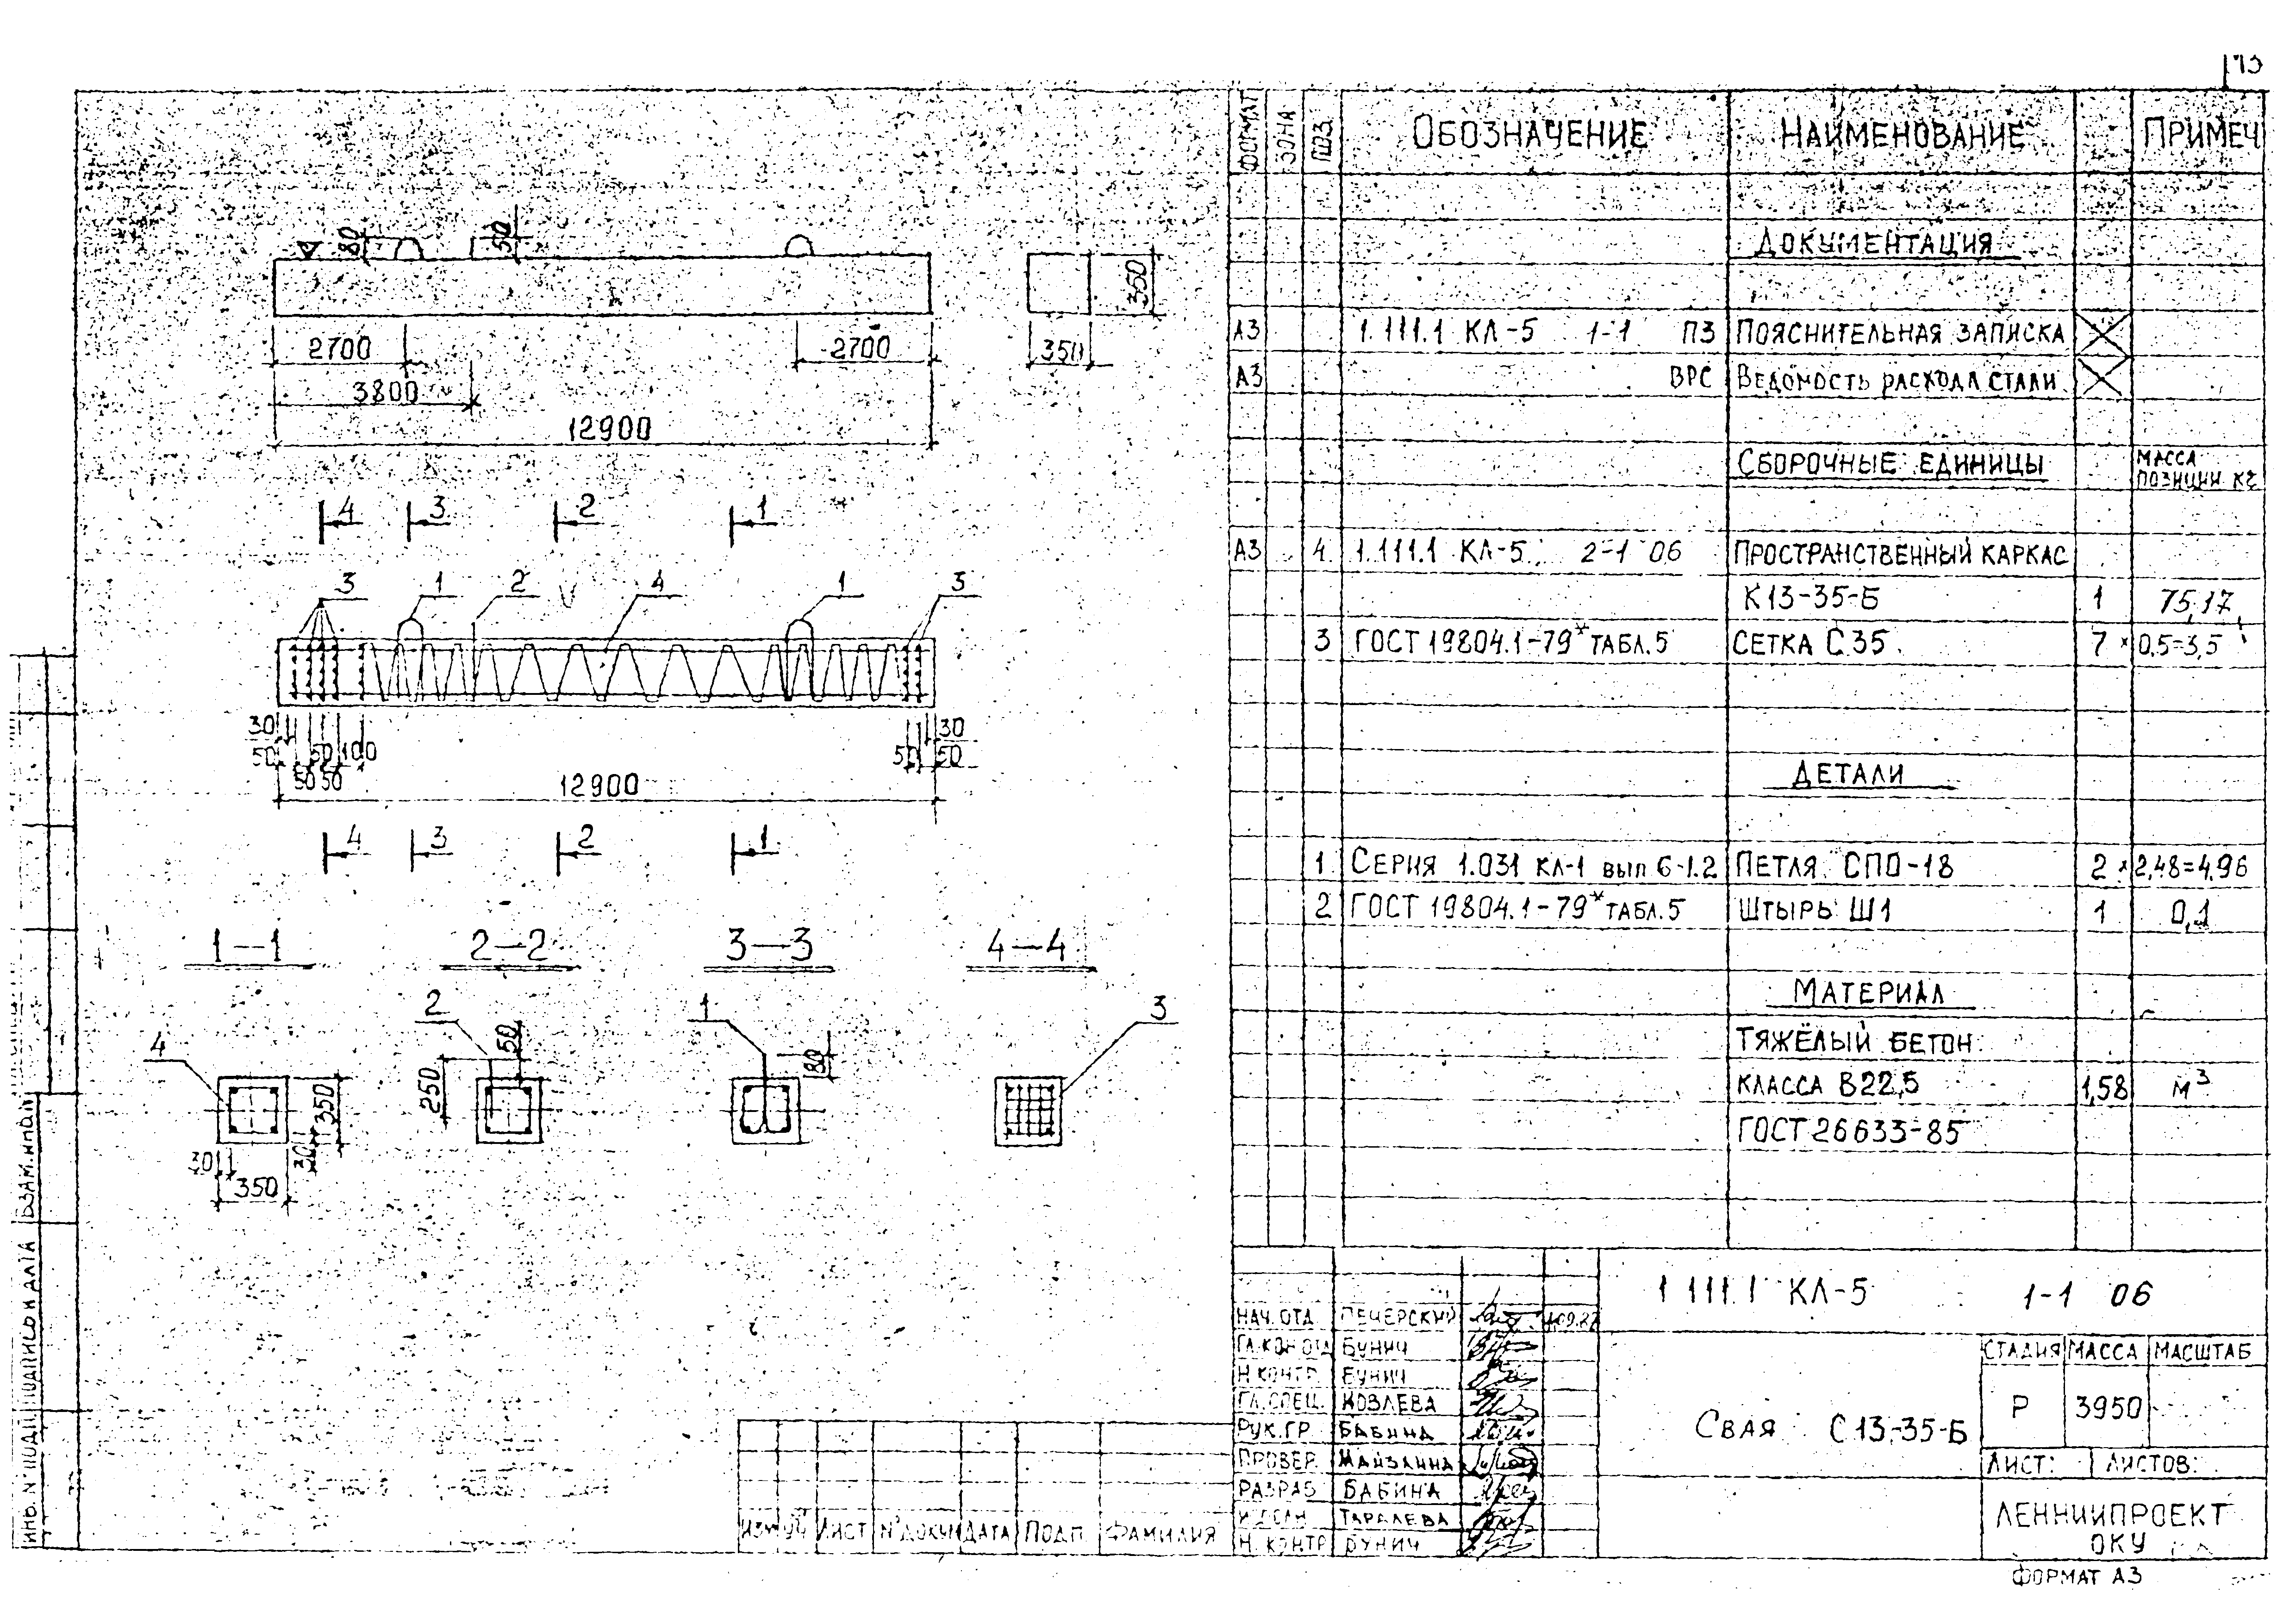 80
50
350
2700
2700
350
3800
12900
4 3 2 1
3 1 2 4 1 3
30 30
50 50 100 50 50
50 50
12900
4 3 2 1
1—1 2—2 3—3 4—4
4
2
1
3
50
80
250
350
30
30
350
ФОРМАТ ЗОНА ПОЗ. ОБОЗНАЧЕНИЕ НАИМЕНОВАНИЕ ПРИМЕЧ
ДОКУМЕНТАЦИЯ
А3 1.111.1 КЛ-5 1-1 ПЗ ПОЯСНИТЕЛЬНАЯ ЗАПИСКА
А3 ВРС ВЕДОМОСТЬ РАСХОДА СТАЛИ
СБОРОЧНЫЕ ЕДИНИЦЫ МАССА ПОЗИЦИИ КГ
А3 4 1.111.1 КЛ-5 2-1 06 ПРОСТРАНСТВЕННЫЙ КАРКАС
К13-35-Б 1 75,17
3 ГОСТ 19804.1-79* ТАБЛ.5 СЕТКА С35 7 × 0,5=3,5
ДЕТАЛИ
1 СЕРИЯ 1.031 КЛ-1 ВЫП 6-1.2 ПЕТЛЯ СПО-18 2 × 2,48=4,96
2 ГОСТ 19804.1-79* ТАБЛ.5 ШТЫРЬ Ш1 1 0,1
МАТЕРИАЛ
ТЯЖЁЛЫЙ БЕТОН
КЛАССА В22,5 1,58 м³
ГОСТ 26633-85
1.111.1 КЛ-5 1-1 06
НАЧ. ОТД. ПЕЧЕРСКИЙ
ГЛ.КОН ОТД БУНИЧ
Н.КОНТР. БУНИЧ
ГЛ.СПЕЦ. КОЗЛЕВА
РУК.ГР. БАБИНА
ПРОВЕР.
РАЗРАБ БАБИНА
ИСПОЛН. ТАРАЛЕВА
Н. КОНТР БУНИЧ
СВАЯ С13-35-Б
СТАДИЯ МАССА МАСШТАБ
Р 3950
ЛИСТ: ЛИСТОВ:
ЛЕННИИПРОЕКТ
ОКУ
ИЗМ УЧ ЛИСТ N°ДОКУМ ДАТА ПОДП. ФАМИЛИЯ
ФОРМАТ А3
ИНВ. N° ПОДЛ ПОДПИСЬ И ДАТА ВЗАМ.ИНВ.N°